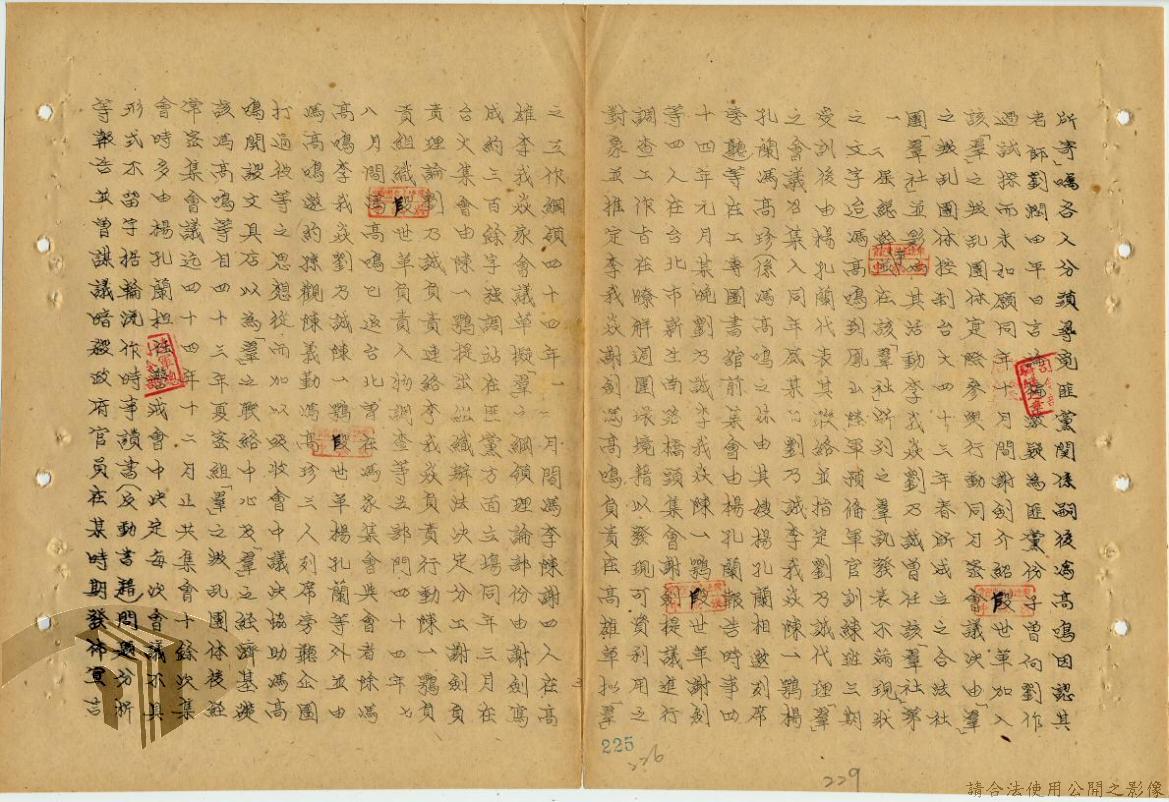 所寄」囑各人分頭尋覓匪黨關係嗣後馮高鳴因認其
老師劉潤四平日言論偏激疑為匪黨份子曾向劉作
過試探而未如願同年十月間謝劍介紹段世革加入
該「羣」之叛亂團体實際參與行動同月密會議決由「羣」
之叛乱團体控制台大四十三年春所成立之合法社
團「羣社」並影响其活動李我焱劉乃誠曾任該「羣社」第
一二屆總幹事在該「羣」社所列之羣訊發表不滿現狀
之文字迨馮高鳴到鳳山陸軍預備軍官訓練班三期
受訓後由楊孔蘭代表其联絡並指定劉乃誠代理「羣」
之會議召集人同年底某日劉乃誠李我焱陳一鶚楊
孔蘭馮高珍(係馮高鳴之妹由其嫂楊孔蘭相邀列席
旁聽等在工專圖書舘前集會由楊孔蘭報告時事四
十四年元月某晚劉乃誠李我焱陳一鶚段世革謝劍
等四人在台北市新生南路橋頭集會謝劍提議進行
調查工作旨在瞭解週圍環境藉以發現可資利用之
對象並推定李我焱謝劍馮高鳴負責在高雄草拟「羣」
之工作綱領四十四年一二月間馮李陳謝四人在高
雄李我焱家會議草擬「羣」之綱領理論部份由謝劍寫
成約三百餘字強調站在匪黨方面立塲同年三月在
台大集會由陳一鶚提出組織辦法決定分工謝劍負
責理論劉乃誠負責連絡李我焱負責行動陳一鶚負
責組織段世革負責人物調查等五部門四十四年七
八月間馮高鳴已返台北曾在馮家集會與會者除馮
高鳴李我焱劉乃誠陳一鶚段世革楊孔蘭等外並由
馮高鳴邀約孫觀陳義勤馮高珍三人列席旁聽企圖
打通彼等之思想從而加以吸收會中議決協助馮高
鳴開設文具店以為「羣」之聯絡中心及「羣」之經濟基礎
該馮高鳴等自四十三年夏密組「羣」之叛乱團体後經
常密集會議迄四十四年十二月止共集會十餘次集
會時多由楊孔蘭担任警戒會中決定每次會議不具
形式不留字據輪流作時事讀書(反動書籍問題分析
等報告並曾謀議暗殺政府官員在某時期發佈宣言
225
226
229
請合法使用公開之影像